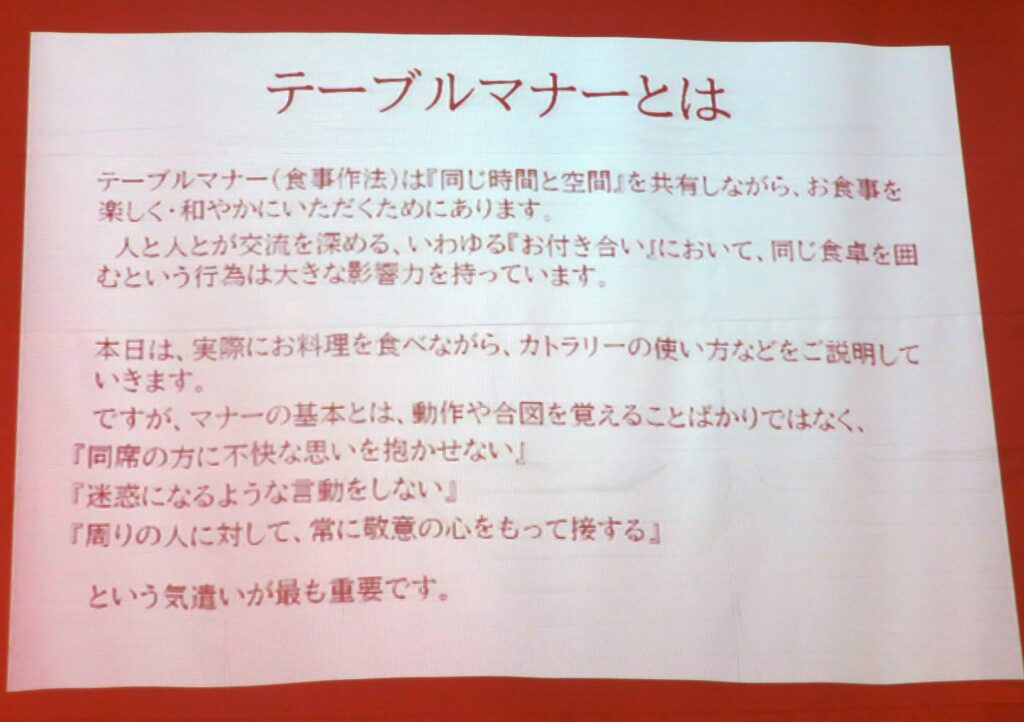 テーブルマナーとは
テーブルマナー(食事作法)は『同じ時間と空間』を共有しながら、お食事を
楽しく・和やかにいただくためにあります。
人と人とが交流を深める、いわゆる『お付き合い』において、同じ食卓を囲
むという行為は大きな影響力を持っています。
本日は、実際にお料理を食べながら、カトラリーの使い方などをご説明して
いきます。
ですが、マナーの基本とは、動作や合図を覚えることばかりではなく、
『同席の方に不快な思いを抱かせない』
『迷惑になるような言動をしない』
『周りの人に対して、常に敬意の心をもって接する』
という気遣いが最も重要です。